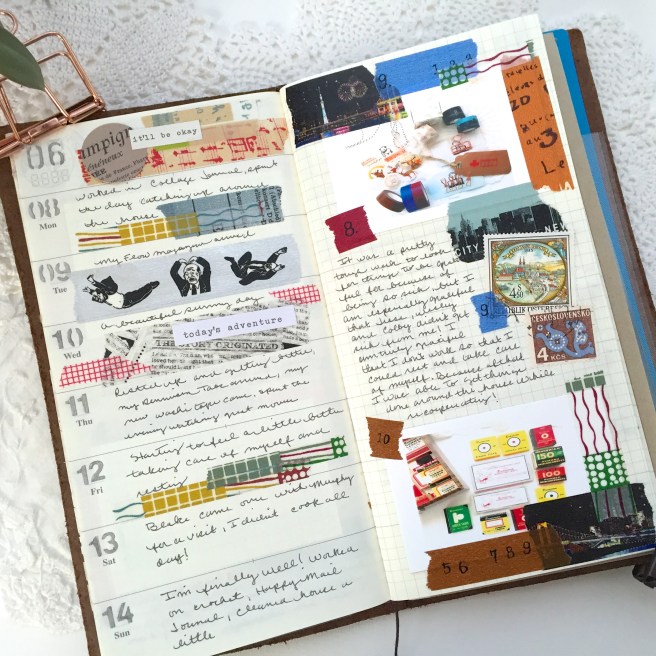 06
mpign
énéneux
it'll be okay
worked in Collage Journal, spent
the day catching up around
the house
08
Mon
my Flow magazine arrived
09
Tue
a beautiful sunny day
10
Wed
today's adventure
THE STORY ORIGINATED
Rested up and getting better,
my new washi tape came, spent the
evening watching great movies
11
Thu
Starting to feel a little better
taking care of myself and
resting
12
Fri
Blake came over with Murphy
for a visit, I didn't cook all
day!
13
Sat
I'm finally well! Worked
on crochet, Happy Mail
Journal, cleaned house a
little
14
Sun
9.
8.
CITY
NEW
It was a pretty
tough week to look
for things to be grate
ful for because of
being so sick but I
am especially grateful
that Jesse, Wesley
and Colby didn't get
sick from me! I
am truly grateful
that I don't work so that I
could rest and take care
of myself. Because of that
I was able to get things
done around the house while
recuperating!
9
4.50
REPUBLIK ÖSTERREICH
ČESKOSLOVENSKO
4 KCS
10
150
100
50
5 6 7 8 9